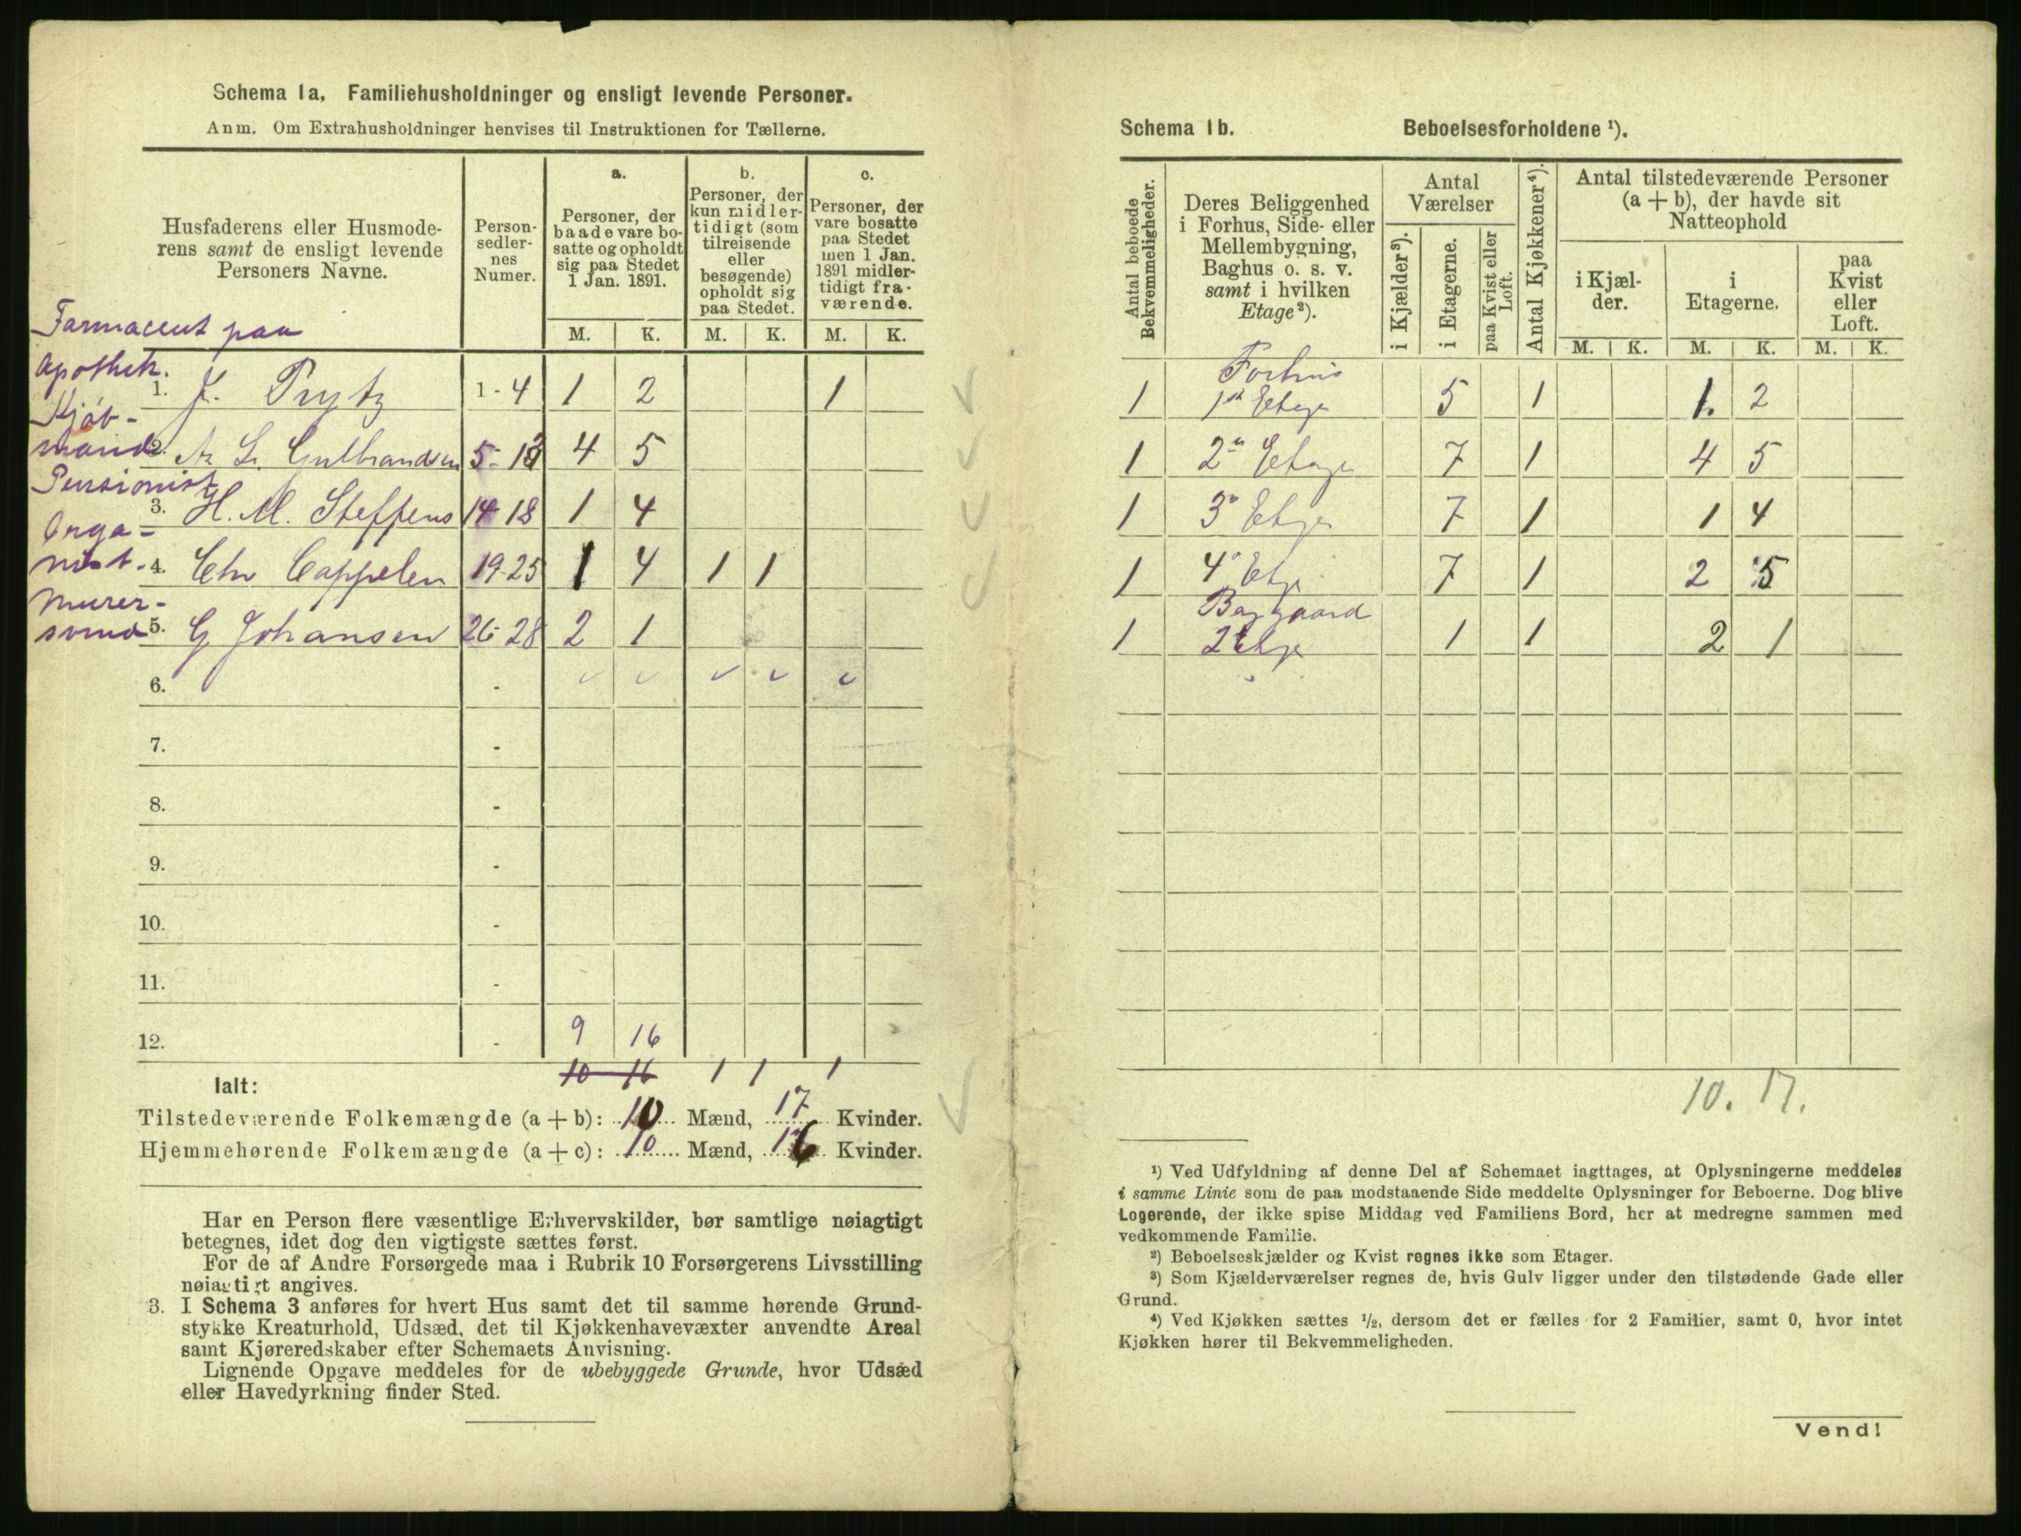 Schema 1a. Familiehusholdninger og ensligt levende Personer.
Anm. Om Extrahusholdninger henvises til Instruktionen for Tællerne.
Husfaderens eller Husmode-
rens samt de ensligt levende
Personers Navne.
Person-
sedler-
nes
Numer.
a.
Personer, der
baade vare bo-
satte og opholdt
sig paa Stedet
1 Jan. 1891.
b.
Personer, der
kun midler-
tidigt (som
tilreisende
eller
besøgende)
opholdt sig
paa Stedet.
c.
Personer, der
vare bosatte
paa Stedet
men 1 Jan.
1891 midler-
tidigt fra-
værende.
M. K. M. K. M. K.
Farmaceut paa
Apothek.
1. J. Prytz 1-4 1 2 1
Kjøb-
mand
2. A. L. Gulbrandsen 5-13 4 5
Pensionist
3. H. M. Steffens 14-18 1 4
Orga-
nist.
4. Chr Cappelen 19-25 1 4 1 1
Murer-
svend
5. G Johansen 26-28 2 1
6. -
7. -
8. -
9. -
10. -
11. -
9 16
12. -
Ialt: 10 16 1 1 1
Tilstedeværende Folkemængde (a + b): 10 Mænd, 17 Kvinder.
Hjemmehørende Folkemængde (a + c): 10 Mænd, 16 Kvinder.
Har en Person flere væsentlige Erhvervskilder, bør samtlige nøiagtigt
betegnes, idet dog den vigtigste sættes først.
For de af Andre Forsørgede maa i Rubrik 10 Forsørgerens Livsstilling
nøiagtigt angives.
3. I Schema 3 anføres for hvert Hus samt det til samme hørende Grund-
stykke Kreaturhold, Udsæd, det til Kjøkkenhavevæxter anvendte Areal
samt Kjøreredskaber efter Schemaets Anvisning.
Lignende Opgave meddeles for de ubebyggede Grunde, hvor Udsæd
eller Havedyrkning finder Sted.
Schema 1b. Beboelsesforholdene ¹).
Antal beboede
Bekvemmeligheder.
Deres Beliggenhed
i Forhus, Side- eller
Mellembygning,
Baghus o. s. v.
samt i hvilken
Etage²).
Antal
Værelser
i Kjælder³).
i Etagerne.
paa Kvist eller
Loft.
Antal Kjøkkener⁴).
Antal tilstedeværende Personer
(a + b), der havde sit
Natteophold
i Kjæl-
der.
i
Etagerne.
paa
Kvist
eller
Loft.
M. K. M. K. M. K.
Forhus
1 1st Etage 5 1 1. 2
1 2n Etage 7 1 4 5
1 3' Etage 7 1 1 4
1 4' Etage 7 1 2 5
Baggaard
1 2 Etage 1 1 2 1
10. 17.
¹) Ved Udfyldning af denne Del af Schemaet iagttages, at Oplysningerne meddeles
i samme Linie som de paa modstaaende Side meddelte Oplysninger for Beboerne. Dog blive
Logerende, der ikke spise Middag ved Familiens Bord, her at medregne sammen med
vedkommende Familie.
²) Beboelseskjælder og Kvist regnes ikke som Etager.
³) Som Kjælderværelser regnes de, hvis Gulv ligger under den tilstødende Gade eller
Grund.
⁴) Ved Kjøkken sættes ½, dersom det er fælles for 2 Familier, samt 0, hvor intet
Kjøkken hører til Bekvemmeligheden.
Vend!